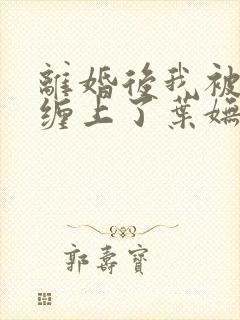 離婚後我被
缠上了葉嫵
郭壽寶